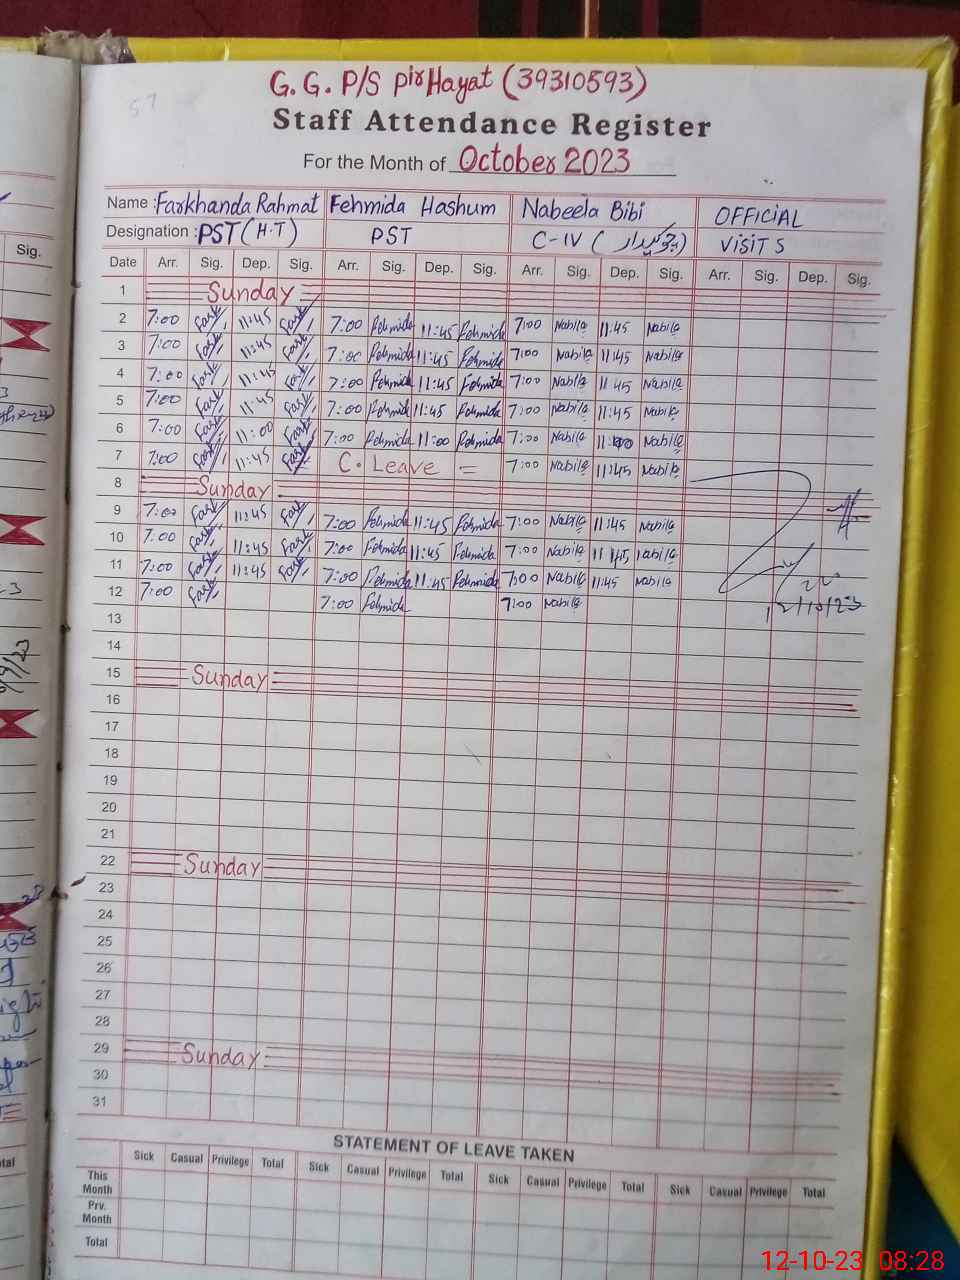 57
G. G. P/S Pir Hayat (39310593)
Staff Attendance Register
For the Month of October 2023
Name : Farkhanda Rahmat Fehmida Hashum Nabeela Bibi OFFICIAL
Designation : PST (H.T) PST C-IV (چوکیدار) VISITS
Sig.
Date Arr. Sig. Dep. Sig. Arr. Sig. Dep. Sig. Arr. Sig. Dep. Sig. Arr. Sig. Dep. Sig.
1 Sunday
2 7:00 Fark 11:45 Fark 7:00 Fehmida 11:45 Fehmida 7:00 Nabila 11:45 Nabila
3 7:00 Fark 11:45 Fark 7:00 Fehmida 11:45 Fehmida 7:00 Nabila 11:45 Nabila
4 7:00 Fark 11:45 Fark 7:00 Fehmida 11:45 Fehmida 7:00 Nabila 11 45 Nabila
5 7:00 Fark 11:45 Fark 7:00 Fehmida 11:45 Fehmida 7:00 Nabila 11:45 Nabila
6 7:00 Fark 11:00 Fark 7:00 Fehmida 11:00 Fehmida 7:00 Nabila 11:00 Nabila
7 7:00 Fark 11:45 Fark C. Leave = 7:00 Nabila 11:45 Nabila
8 Sunday
9 7:00 Fark 11:45 Fark 7:00 Fehmida 11:45 Fehmida 7:00 Nabila 11:45 Nabila
10 7:00 Fark 11:45 Fark 7:00 Fehmida 11:45 Fehmida 7:00 Nabila 11 45 Nabila
11 7:00 Fark 11:45 Fark 7:00 Fehmida 11:45 Fehmida 7:00 Nabila 11:45 Nabila
12 7:00 Fark 7:00 Fehmida 7:00 Nabila 12/10/23
13
14
15 Sunday
16
17
18
19
20
21
22 Sunday
23
24
25
26
27
28
29 Sunday
30
31
STATEMENT OF LEAVE TAKEN
Sick Casual Privilege Total Sick Casual Privilege Total Sick Casual Privilege Total Sick Casual Privilege Total
This Month
Prv. Month
Total
12-10-23 08:28